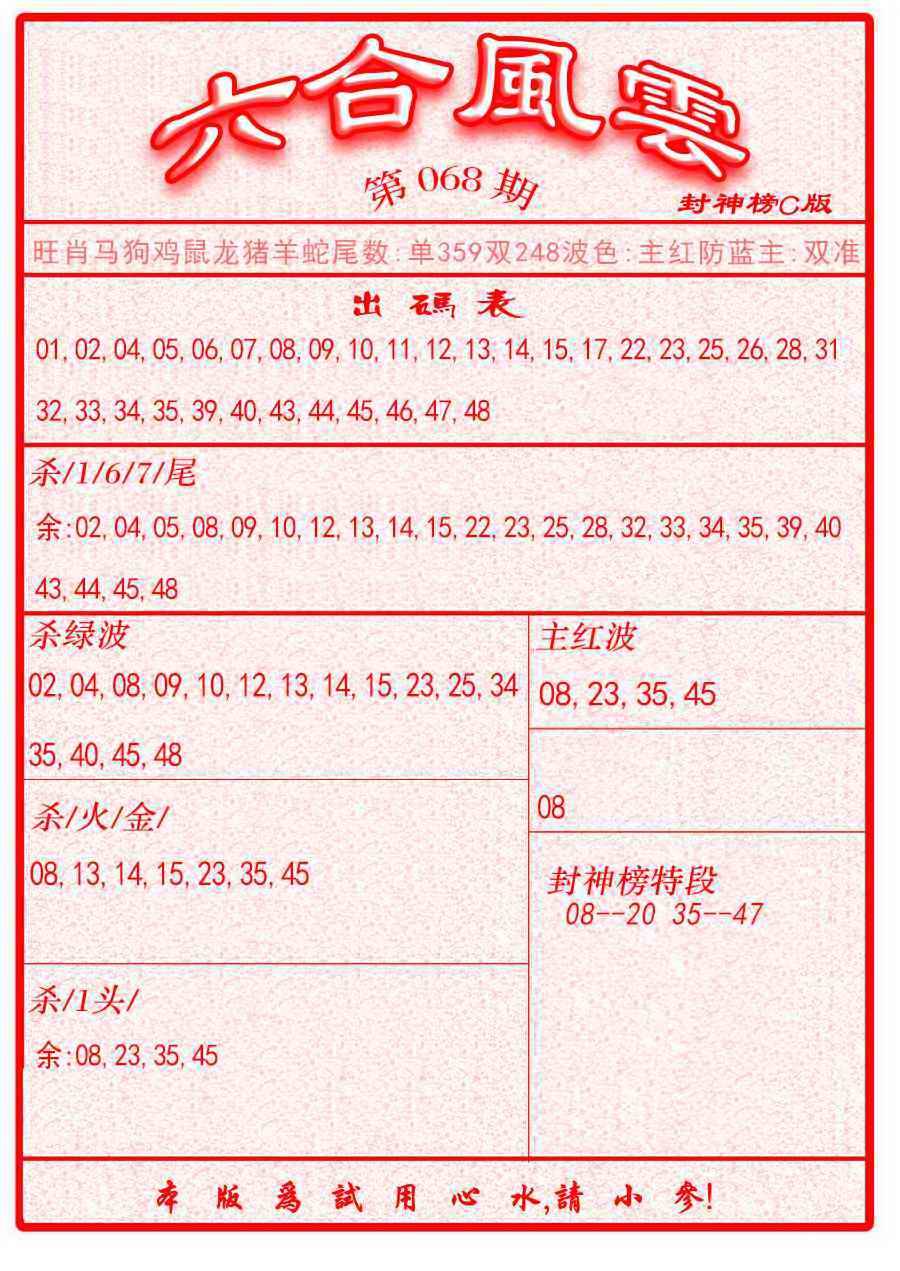 六合風雲
第 068 期
封神榜C版
旺肖马狗鸡鼠龙猪羊蛇尾数:单359双248波色:主红防蓝主:双准
出碼表
01,02,04,05,06,07,08,09,10,11,12,13,14,15,17,22,23,25,26,28,31
32,33,34,35,39,40,43,44,45,46,47,48
杀/1/6/7/尾
余:02,04,05,08,09,10,12,13,14,15,22,23,25,28,32,33,34,35,39,40
43,44,45,48
杀绿波
02,04,08,09,10,12,13,14,15,23,25,34
35,40,45,48
杀/火/金/
08,13,14,15,23,35,45
杀/1头/
余:08,23,35,45
主红波
08,23,35,45
08
封神榜特段
08--20 35--47
本版爲試用心水,請小參!